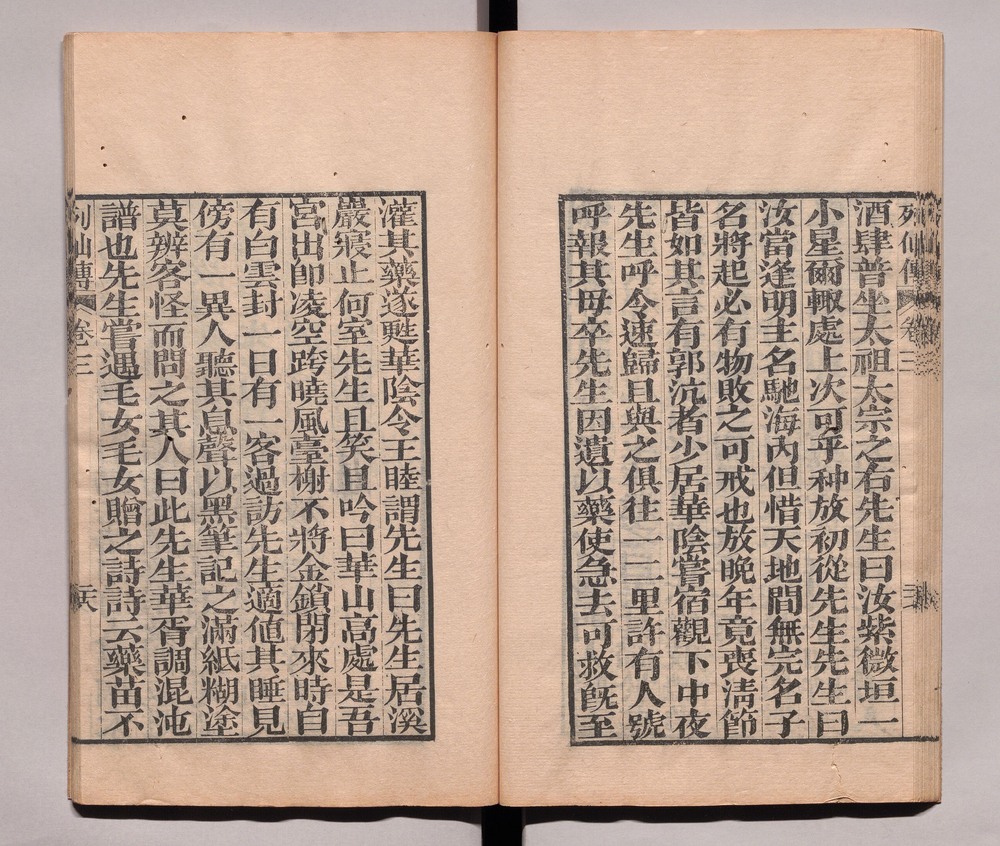 列仙傳 卷三
酒肆普坐太祖太宗之右先生曰汝紫微垣一
小星爾輙處上次可乎种放初從先生先生曰
汝當逢明主名馳海內但惜天地間無完名子
名將起必有物敗之可戒也放晚年竟喪清節
皆如其言有郭沆者少居華陰嘗宿觀下中夜
先生呼令速歸且與之俱往一二里許有人號
呼報其母卒先生因遺以藥使急去可救旣至
灌其藥遂甦華陰令王睦謂先生曰先生居溪
巖寢止何室先生且笑且吟曰華山高處是吾
宮出卽凌空跨曉風臺榭不將金鎖閉來時自
有白雲封一日有一客過訪先生適値其睡見
傍有一異人聽其息聲以黑筆記之滿紙糊塗
莫辨客怪而問之其人曰此先生華胥調混沌
譜也先生嘗遇毛女毛女贈之詩詩云藥苗不
列仙傳 卷三